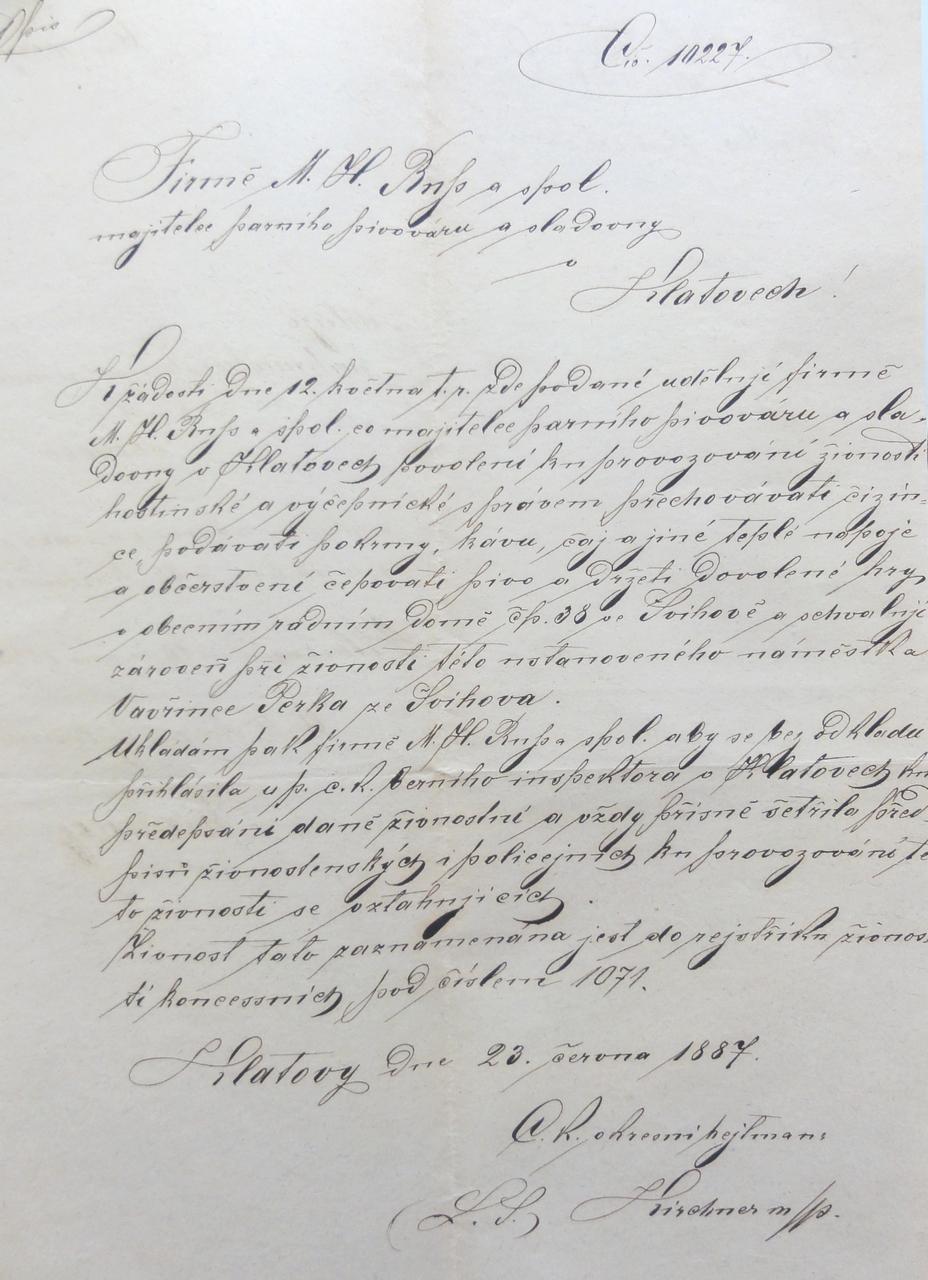 Opis
Čís. 10227.
Firmě M. H. Russ a spol.
majitelce parního pivováru a sladovny
v
Klatovech!
K žádosti dne 12. května t. r. zde podané uděluji firmě
M. H. Russ a spol. co majitelce parního pivováru a sla-
dovny v Klatovech povolení ku provozování živnosti
hostinské a výčepnické s právem přechovávati cizin-
ce, podávati pokrmy, kávu, čaj a jiné teplé nápoje
a občerstvení čepovati pivo a držeti dovolené hry
v obecním rádním domě čp. 38 ve Švihově a schvaluji
zároveň při živnosti této ustanoveného náměstka
Vavřince Perka ze Švihova.
Ukládám pak firmě M. H. Russ a spol. aby se bez odkladu
přihlásila u p. c. k. berního inspektora v Klatovech ku
předepsání daně živnostní a vždy přísně šetřila před-
pisů živnostenských i policejních ku provozování té
to živnosti se vztahujících.
Živnost tato zaznamenána jest do rejstříku živnos
tí koncessních pod číslem 1071.
Klatovy dne 23. června 1887.
C. k. okresní hejtman:
(L. S.) Kirchner m/p.